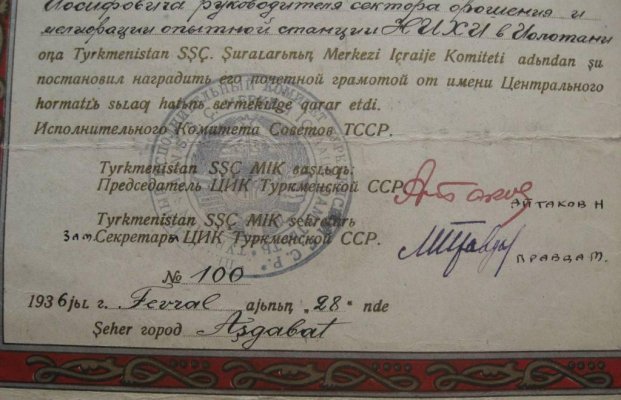 Иосифовича руководителя сектора орошения и
мелиорации опытной станции НИХИ в Иолотани
oꞑa Tyrkmenistan SSÇ. Şuralarьnьꞑ Merkezi Içraije Komiteti adьndan şu
постановил наградить его почетной грамотой от имени Центрального
hormatlь sьlaq hatьnь bermekilge qarar etdi.
Исполнительного Комитета Советов ТССР.
Tyrkmenistan SSÇ MIK başlьqь:
Председатель ЦИК Туркменской ССР
АЙТАКОВ Н
Tyrkmenistan SSÇ MIK sekretarь
зам. Секретарь ЦИК Туркменской ССР.
ПРАВДА М.
№ 100
1936 jьl г. Fevral ajьnьꞑ „28" nde
Şeher город Aşgabat